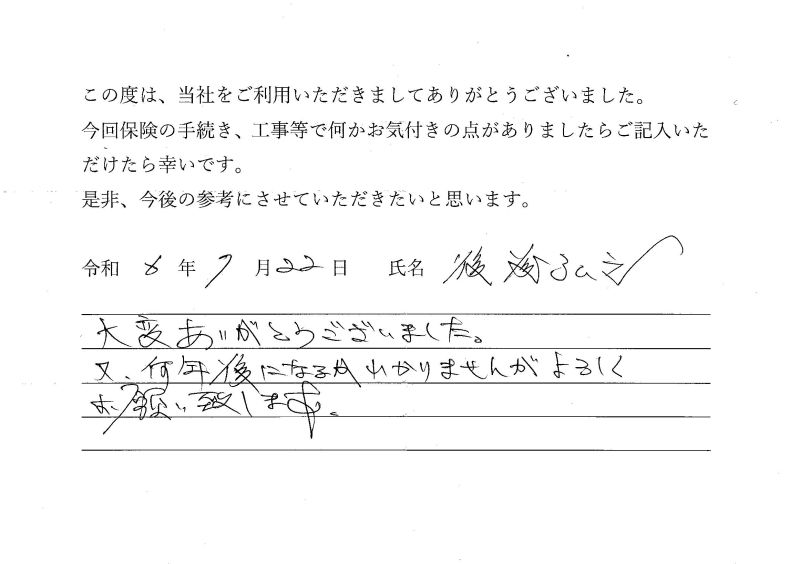 この度は、当社をご利用いただきましてありがとうございました。
今回保険の手続き、工事等で何かお気付きの点がありましたらご記入いた
だけたら幸いです。
是非、今後の参考にさせていただきたいと思います。
令和 6 年 7 月 22 日 氏名 後
大変ありがとうございました。
又、何年後になるかわかりませんがよろしく
お願い致します。